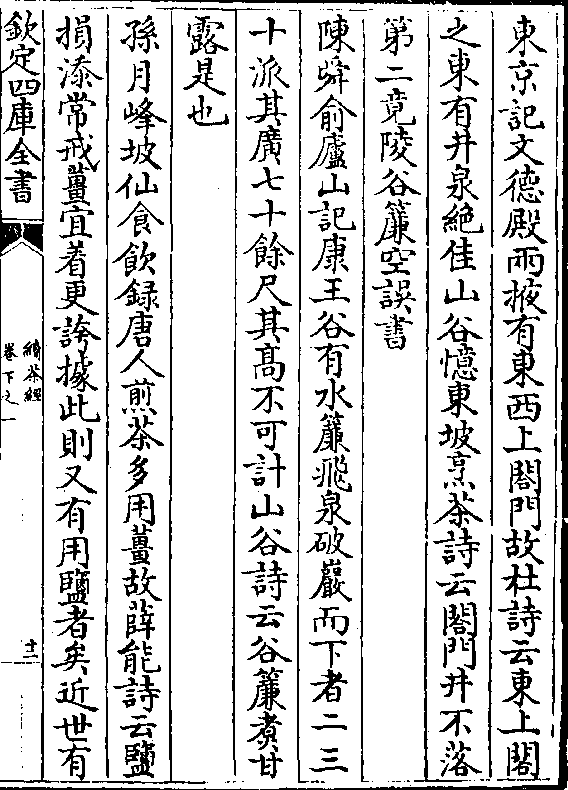 東京記文德殿兩掖有東西上閤門故杜詩云東上閤
之東有井泉絶佳山谷憶東坡烹茶詩云閤門井不落
第二竟陵谷簾空誤書
陳舜俞廬山記康王谷有水簾飛泉破巖而下者二三
十派其廣七十餘尺其髙不可計山谷詩云谷簾煑甘
露是也
孫月峰坡仙食飲録唐人煎茶多用薑故薛能詩云鹽
損添常戒薑宜着更誇據此則又有用鹽者矣近世有
欽定四庫全書
續茶經
卷下之一
十二